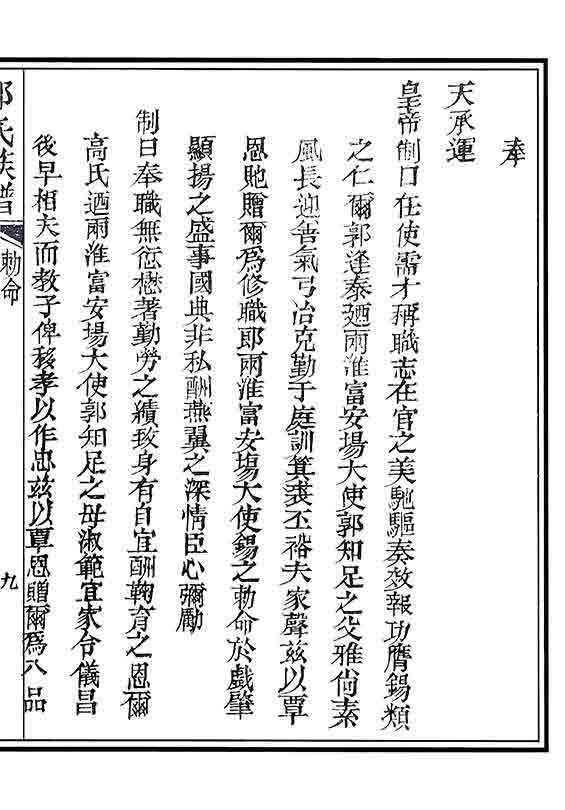 奉
天承運
皇帝制曰在使需才稱職志在官之美馳驅奏效報功膺錫類
之仁爾郭逢泰廼兩淮富安場大使郭知足之父雅尙素
風長迎善氣弓冶克勤于庭訓箕裘丕裕夫家聲茲以覃
恩貤贈爾爲修職郎兩淮富安塲大使錫之勅命於戲肇
顯揚之盛事國典非私酬燕翼之深情臣心彌勵
制曰奉職無愆懋著勤勞之績致身有自宜酬鞠育之恩爾
高氏廼兩淮富安場大使郭知足之母淑範宜家令儀昌
後早相夫而教子俾移孝以作忠茲以覃恩贈爾爲八品
郭氏族譜
勅命
九